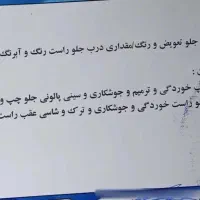 جلو تعویض و رنگ/مقداری درب جلو راست رنگ و آبرنگ
:
خوردگی و ترمیم و جوشکاری و سینی پالونی جلو چپ و
راست خوردگی و جوشکاری و ترک و شاسی عقب راست